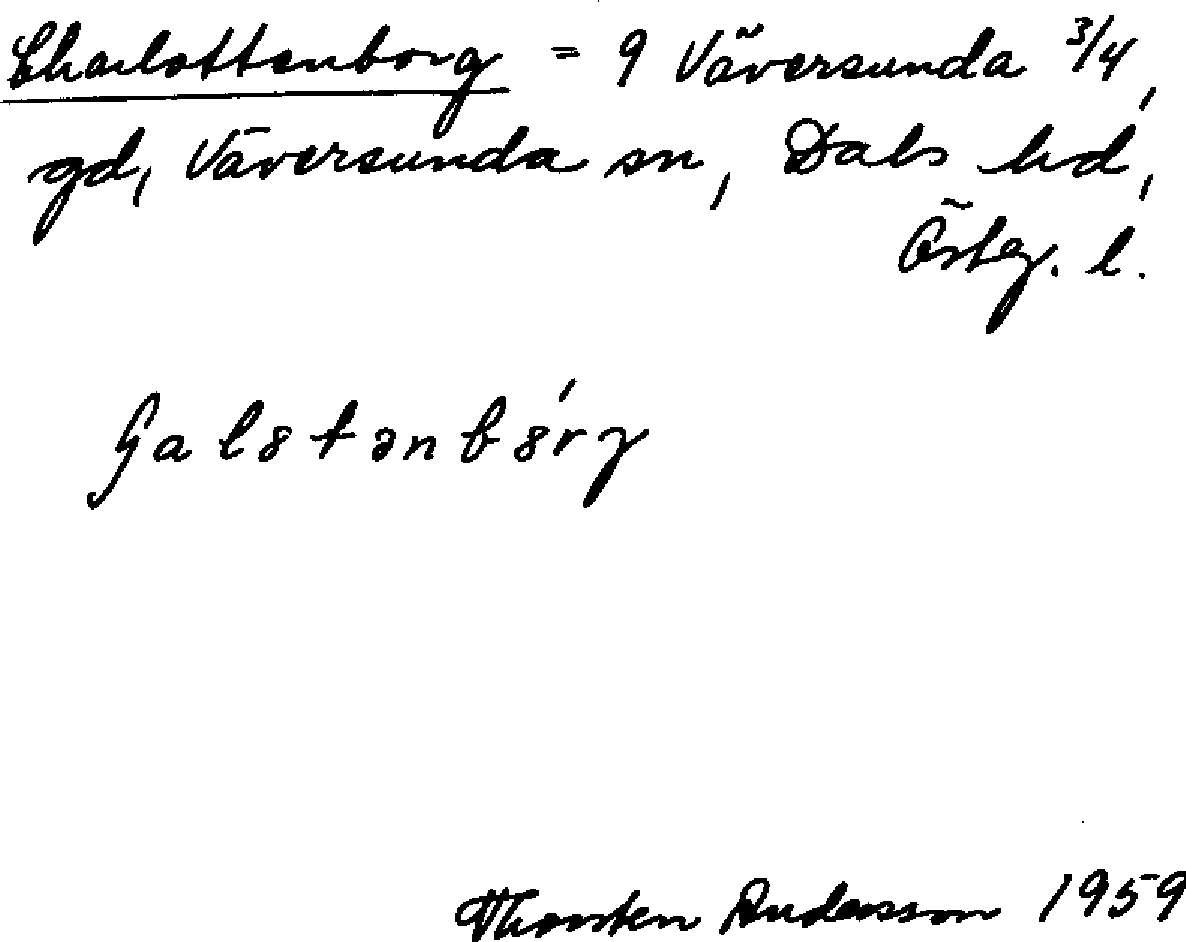 Charlottenborg = 9 Väversunda 3/4,
gd, Väversunda sn, Dals hd,
Östg. l.
Thorsten Andersson 1959